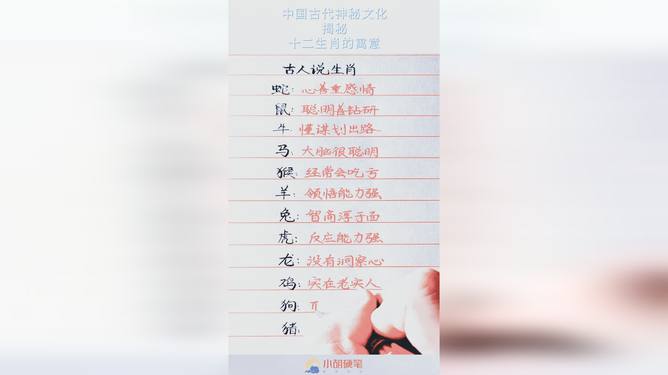 中国古代神秘文化
揭秘
十二生肖的寓意
古人说生肖
蛇：心善重感情
鼠：聪明善钻研
牛：懂谋划出路
马：大脑很聪明
猴：经常会吃亏
羊：领悟能力强
兔：智商浮于面
虎：反应能力强
龙：没有洞察心
鸡：实在老实人
狗：
猪：
小胡硬笔